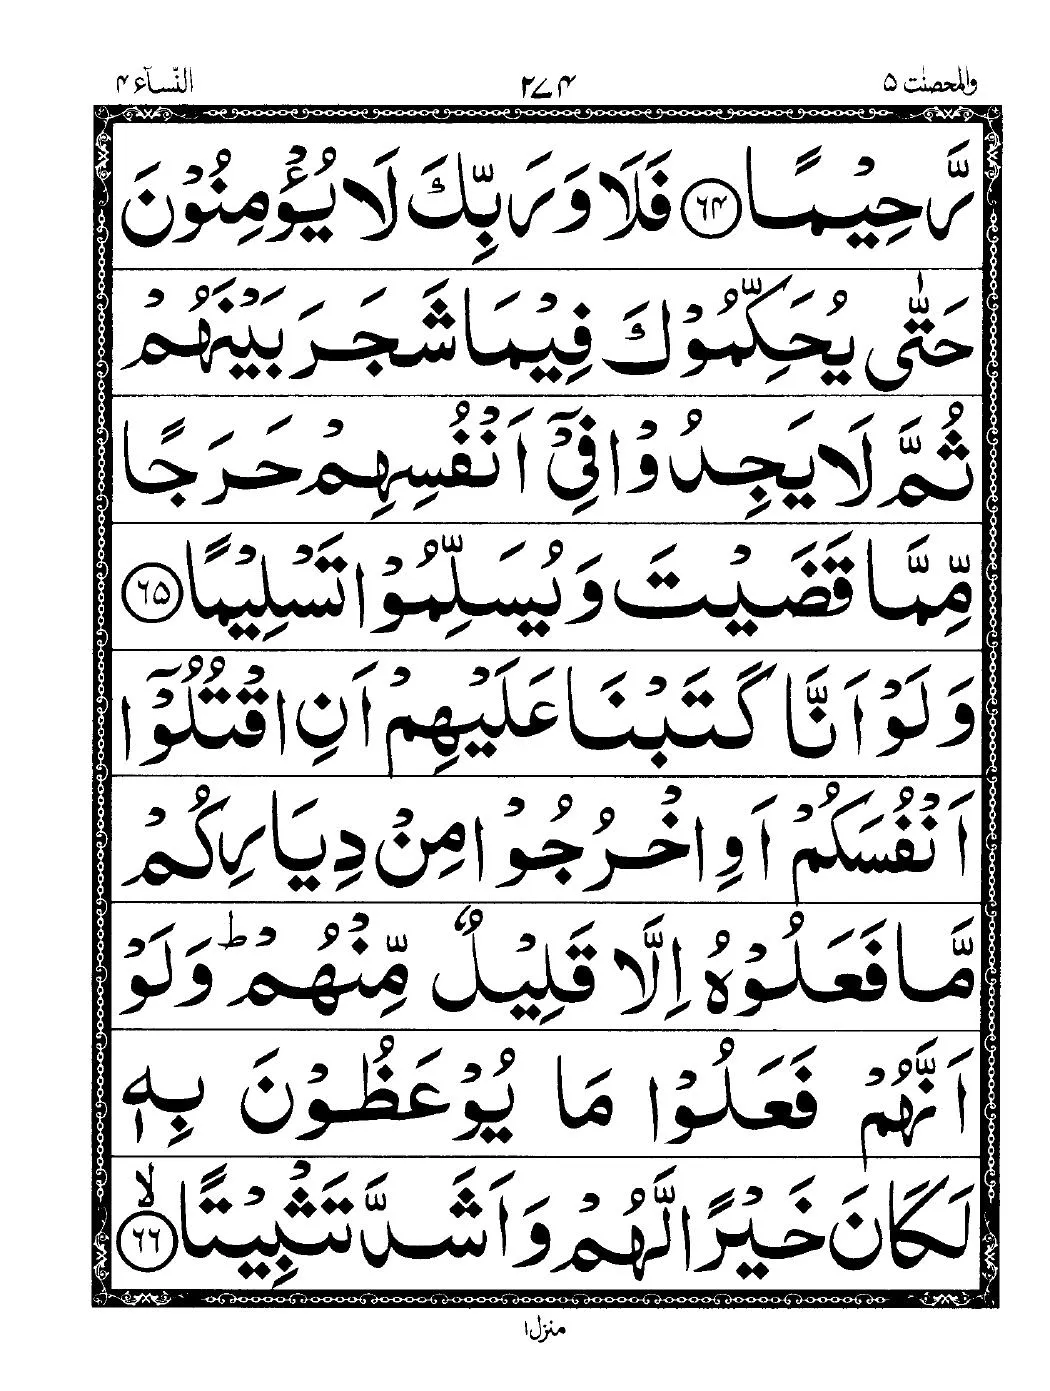 والمحصنت ۵ ۲۷۴ النّسآء ۴
رَّحِيْمًا ﴿۶۴﴾ فَلَا وَ رَبِّكَ لَا يُؤْمِنُوْنَ
حَتّٰى يُحَكِّمُوْكَ فِيْمَا شَجَرَ بَيْنَهُمْ
ثُمَّ لَا يَجِدُوْا فِىْٓ اَنْفُسِهِمْ حَرَجًا
مِّمَّا قَضَيْتَ وَ يُسَلِّمُوْا تَسْلِيْمًا ﴿۶۵﴾
وَ لَوْ اَنَّا كَتَبْنَا عَلَيْهِمْ اَنِ اقْتُلُوْٓا
اَنْفُسَكُمْ اَوِ اخْرُجُوْا مِنْ دِيَارِكُمْ
مَّا فَعَلُوْهُ اِلَّا قَلِيْلٌ مِّنْهُمْ ؕ وَ لَوْ
اَنَّهُمْ فَعَلُوْا مَا يُوْعَظُوْنَ بِهٖ
لَكَانَ خَيْرًا لَّهُمْ وَ اَشَدَّ تَثْبِيْتًا ۙ﴿۶۶﴾
منزل۱